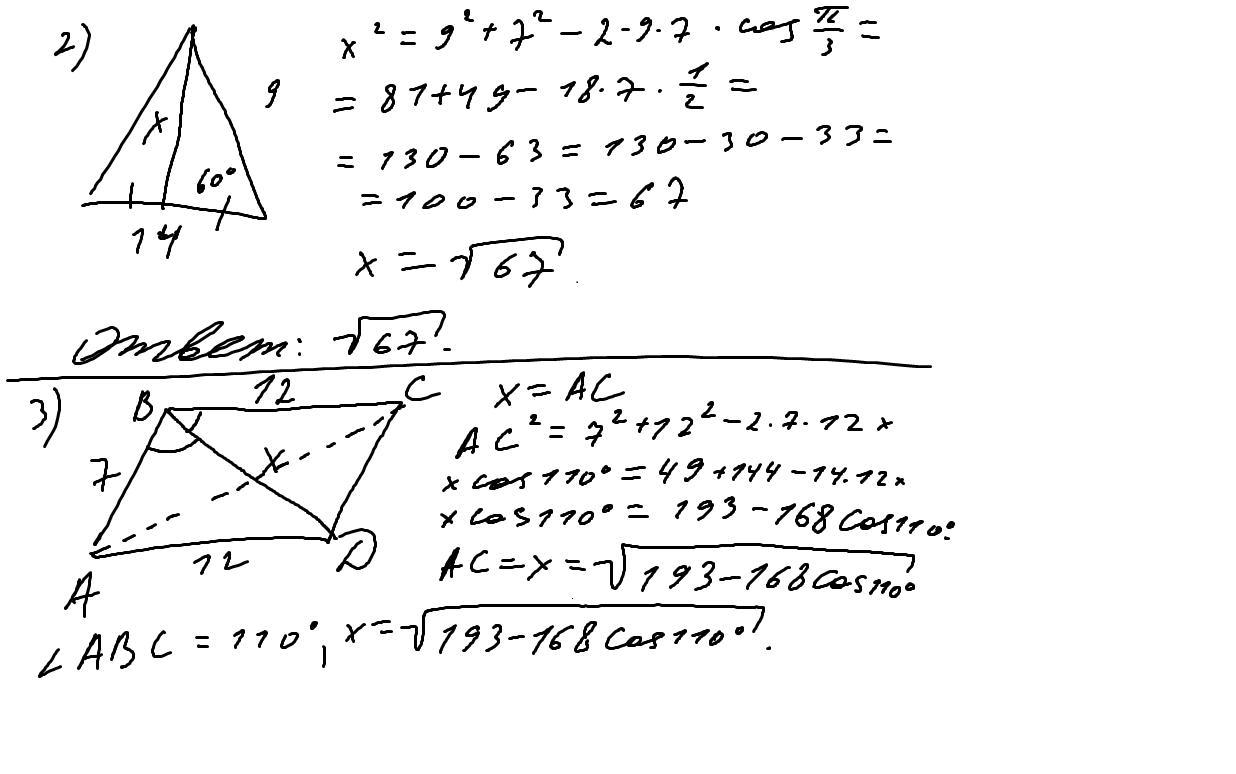 2)
x² = 9² + 7² - 2·9·7 · cos π/3 =
9
= 81 + 49 - 18·7 · 1/2 =
x
= 130 - 63 = 130 - 30 - 33 =
60°
= 100 - 33 = 67
14
x = √67
Ответ: √67.
3)
B 12 C
x = AC
AC² = 7² + 12² - 2·7·12 x
7
x
x cos 110° = 49 + 144 - 14·12 x
x cos 110° = 193 - 168 cos 110°.
A 12 D
AC = x = √193 - 168 cos 110°
∠ABC = 110°, x = √193 - 168 cos 110°.